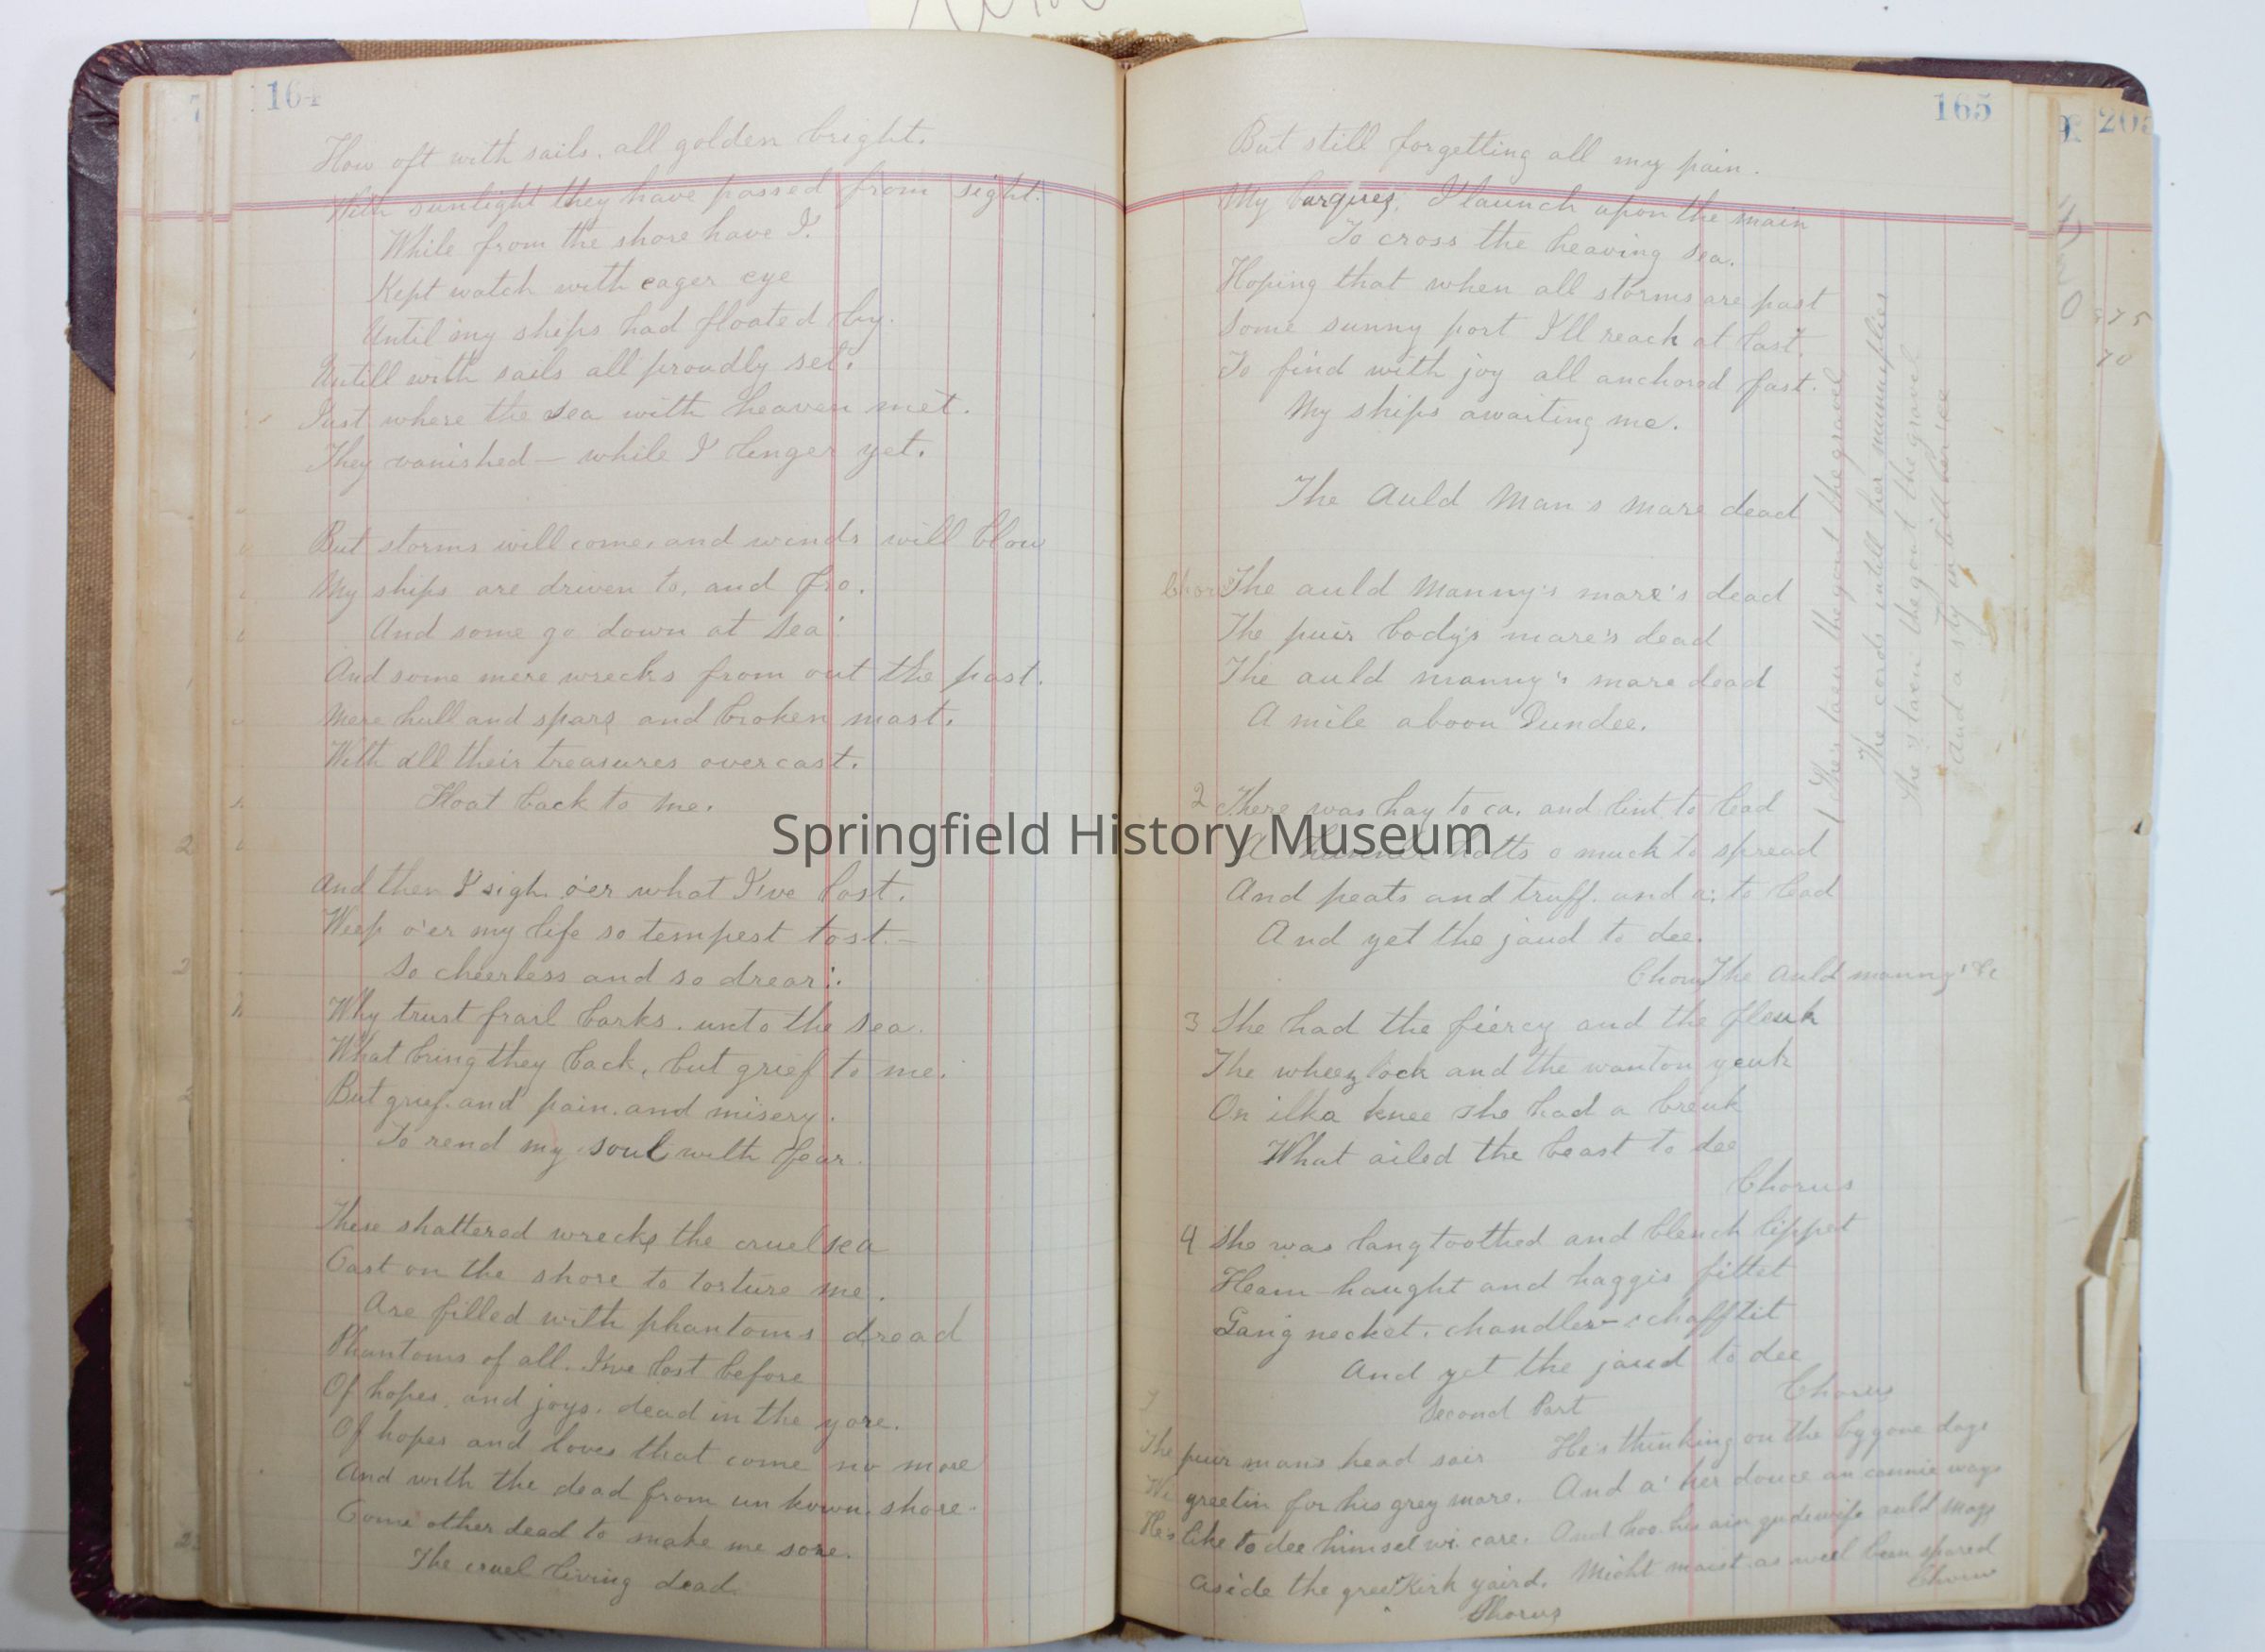 164
How oft with sails. all golden bright.
With sunlight they have passed from sight.
While from the shore have I.
Kept watch with eager eye
Until my ships had floated by.
Untill with sails all proudly set.
Just where the sea with heaven met.
They vanished — while I linger yet.
But storms will come. and winds will blow
My ships are driven to, and fro.
And some go down at sea.
And some mere wrecks from out the past.
Mere hull and spars and broken mast.
With all their treasures overcast.
Float back to me.
And then I sigh o'er what I've lost.
Weep o'er my life so tempest tost. —
So cheerless and so drear.
Why trust frail barks. unto the sea.
What bring they back, but grief to me.
But grief. and pain. and misery.
To rend my soul with fear.
These shattered wrecks the cruel sea
Cast on the shore to torture me.
Are filled with phantoms dread
Phantoms of all. I've lost before
Of hopes. and joys. dead in the yore.
Of hopes and loves that come no more
And with the dead from un known. shore.
Come other dead to make me sore.
The cruel living dead.
165
But still forgetting all my pain.
My barques. I launch upon the main
To cross the heaving sea.
Hoping that when all storms are past
Some sunny port I'll reach at last.
To find with joy all anchored fast.
My ships awaiting me.
The Auld Man's mare dead
Chor The auld Manny's mare's dead
The puir body's mare's dead
The auld manny's mare dead
A mile aboon Dundee.
2 There was hay to ca. and lint to lead
A hotts o muck to spread
And peats and truff. and a: to lead
And yet the jaud to dee.
Chorus The Auld manny's &c
3 She had the fiercy and the fleuk
The wheezlock and the wanton yeuk
On ilka knee she had a breuk
What ailed the beast to dee
Chorus
4 She was langtoothed and blench lippet
Heam-haught and haggis fittet
Lang necket. chandler-chafftit
And yet the jaud to dee
Chorus
Second Part
The puir mans head sair He's thinking on the bygone days
We greetin for his grey mare. And a' her douce an cannie ways
He's like to dee himsel wi. care. And hoo his ain gudewife auld Magg
aside the green Kirk yaird. Micht maist as weel been spared
Chorus
Chorus
203
Springfield History Museum